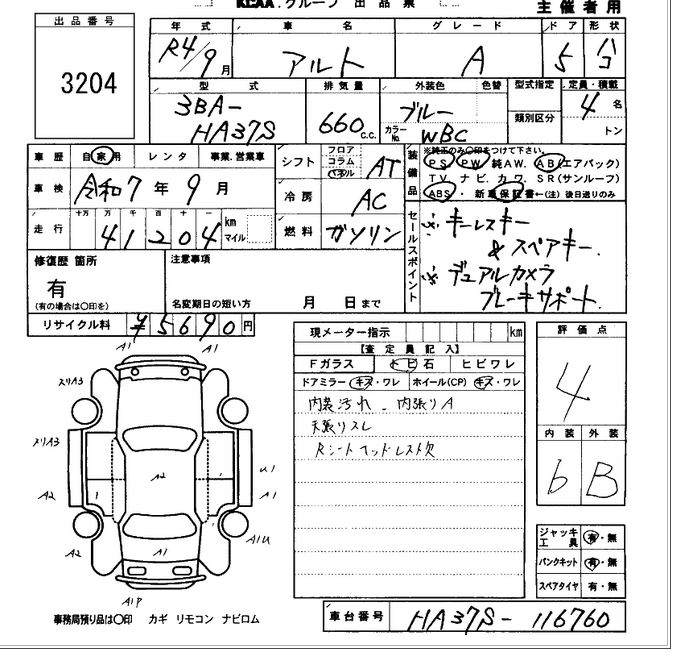 KCAA.グループ 出品票
主催者用
出品番号
3204
年式 車名 グレード ドア 形状
R4/9月 アルト A 5 ハコ
型式 排気量 外装色 色替 型式指定 定員・積載
3BA-HA37S 660c.c. ブルー カラーNo. WBC 類別区分 4名 トン
車歴 自家用 レンタ 事業.営業車
車検 令和7年9月
走行 十万 万 千 百 十 一
41204 km マイル
シフト フロア コラム パネル AT
冷房 AC
燃料 ガソリン
装備品 ※純正のみ○印をつけて下さい。
PS PW 純AW. AB(エアバック)
TV ナビ カワ SR(サンルーフ)
ABS・新車保証書←(注)後日送りのみ
セールスポイント
※キーレスキー
&スペアキー.
※デュアルカメラ
ブレーキサポート.
修復歴 箇所
有
(有の場合は○印を)
注意事項
名変期日の短い方 月 日まで
リサイクル料 ¥5690円
現メーター指示 km
【査定員記入】
Fガラス トビ石 ヒビワレ
ドアミラー キズ・ワレ ホイール(CP) キズ・ワレ
内装汚れ - 内張りA
天張りスレ
Rシートヘッドレスト欠
評価点
4
内装 外装
b B
ジャッキ工具 有・無
パンクキット 有・無
スペアタイヤ 有・無
A1 A1
スリA3
スリA3
A2
A2
A2
U1
A1
A1U
A1
A1P
事務局預り品は○印 カギ リモコン ナビロム
車台番号 HA37S-116760